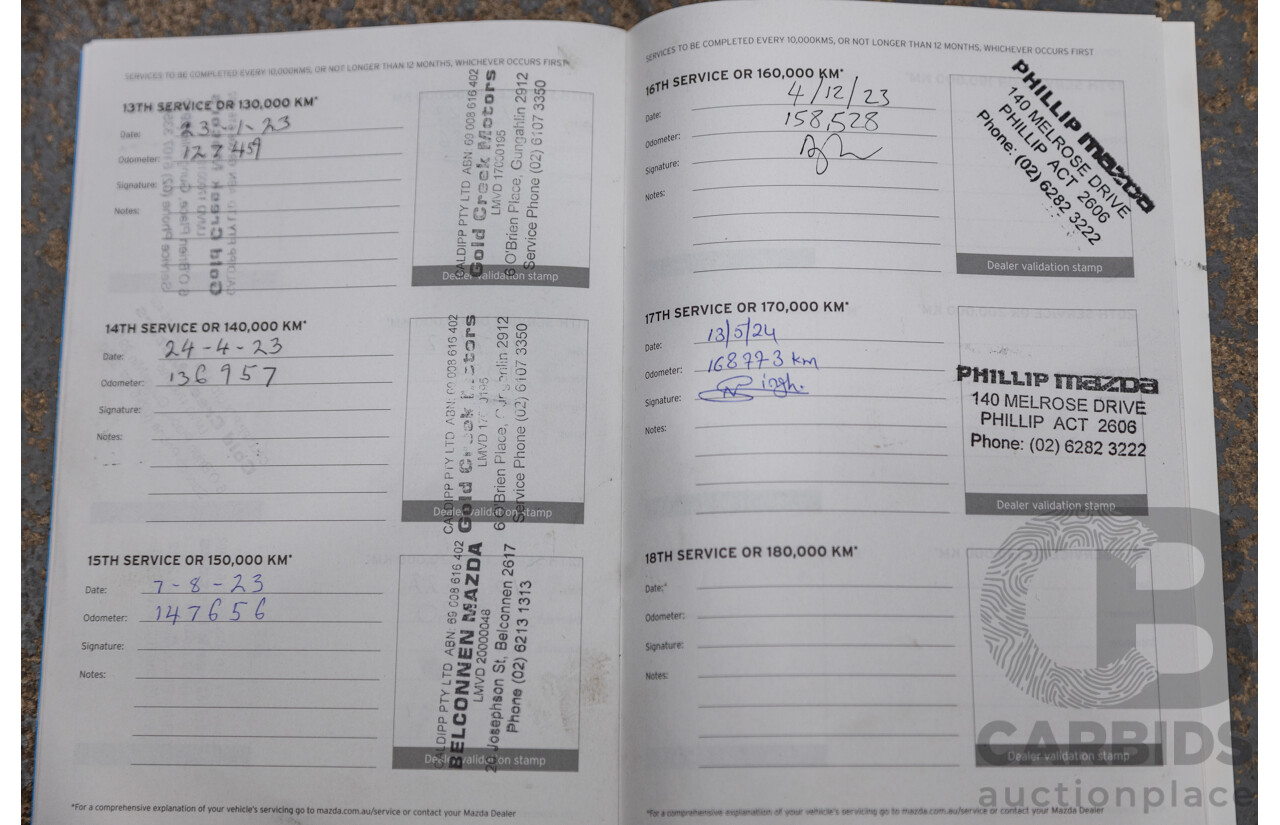 SERVICES TO BE COMPLETED EVERY 10,000KMS, OR NOT LONGER THAN 12 MONTHS, WHICHEVER OCCURS FIRST
13TH SERVICE OR 130,000 KM*
Date: 23-1-23
Odometer: 127459
Signature:
Notes:
CALDIPP PTY LTD ABN: 69 008 616 402
Gold Creek Motors
LMVD 17000195
6 O'Brien Place, Gungahlin 2912
Service Phone (02) 6107 3350
Dealer validation stamp
14TH SERVICE OR 140,000 KM*
Date: 24-4-23
Odometer: 136957
Signature:
Notes:
CALDIPP PTY LTD ABN: 69 008 616 402
Gold Creek Motors
LMVD 17000195
6 O'Brien Place, Gungahlin 2912
Service Phone (02) 6107 3350
Dealer validation stamp
15TH SERVICE OR 150,000 KM*
Date: 7-8-23
Odometer: 147656
Signature:
Notes:
CALDIPP PTY LTD ABN: 69 008 616 402
BELCONNEN MAZDA
LMVD 20000048
Josephson St, Belconnen 2617
Phone (02) 6213 1313
Dealer validation stamp
*For a comprehensive explanation of your vehicle's servicing go to mazda.com.au/service or contact your Mazda Dealer
SERVICES TO BE COMPLETED EVERY 10,000KMS, OR NOT LONGER THAN 12 MONTHS, WHICHEVER OCCURS FIRST
16TH SERVICE OR 160,000 KM*
Date: 4/12/23
Odometer: 158,528
Signature:
Notes:
PHILLIP mazda
140 MELROSE DRIVE
PHILLIP ACT 2606
Phone: (02) 6282 3222
Dealer validation stamp
17TH SERVICE OR 170,000 KM*
Date: 13/5/24
Odometer: 168773 km
Signature: Singh.
Notes:
PHILLIP mazda
140 MELROSE DRIVE
PHILLIP ACT 2606
Phone: (02) 6282 3222
Dealer validation stamp
18TH SERVICE OR 180,000 KM*
Date:
Odometer:
Signature:
Notes:
Dealer validation stamp
*For a comprehensive explanation of your vehicle's servicing go to mazda.com.au/service or contact your Mazda Dealer
CB
CARBIDS
auctionplace